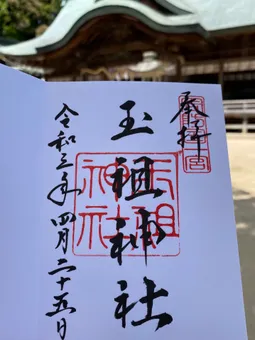 奉拝
一宮
玉祖神社
玉祖
神社
令和三年四月二十五日